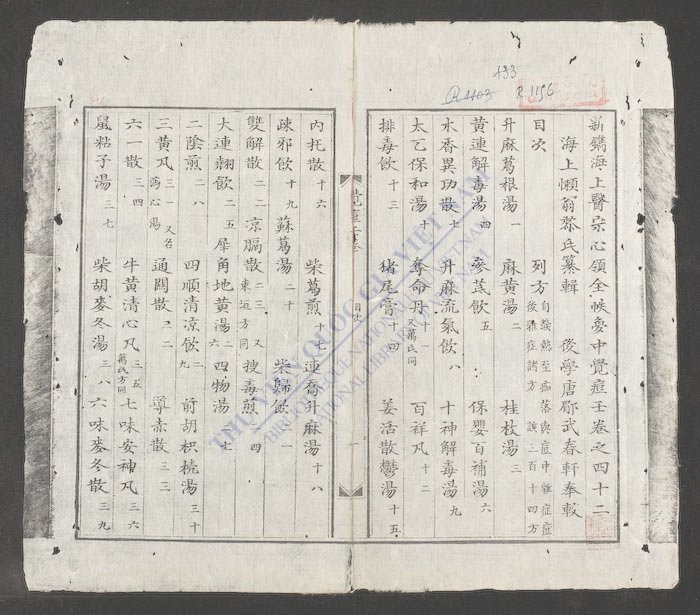 133
R 1156
新鐫海上醫宗心領全帙夢中覺痘壬卷之四十二
海上懶翁黎氏纂輯 後學唐郿武春軒奉較
目次 列方 自發熱至痂落與痘中雜症痘後雜症諸方 該二百十四方
升麻葛根湯 一 麻黃湯 二 桂枝湯 三
黃連解毒湯 四 參芪飲 五 保嬰百補湯 六
木香異功散 七 升麻流氣飲 八 十神解毒湯 九
太乙保和湯 十 奪命丹 十一 又萬氏同 百祥丸 十二
排毒飲 十三 猪尾膏 十四 羌活散鬱湯 十五
目次
一
內托散 十六 柴葛煎 十七 連喬升麻湯 十八
疎邪飲 十九 蘇葛湯 二十 柴歸飲 二一
雙解散 二二 凉膈散 二三 又東垣方同 搜毒煎 二四
大連翹飲 二五 犀角地黃湯 二六 四物湯 二七
二陰煎 二八 四順清凉飲 二九 前胡枳梹湯 三十
三黃丸 三一 又名瀉心湯 通關散 三二 導赤散 三三
六一散 三四 牛黃清心丸 三五 萬氏方同 七味安神丸 三六
鼠粘子湯 三七 柴胡麥冬湯 三八 六味麥冬散 三九
THƯ VIỆN QUỐC GIA VIỆT NAM
BIBLIOTHÈQUE NATIONALE DU VIETNAM
NATIONAL LIBRARY OF VIETNAM